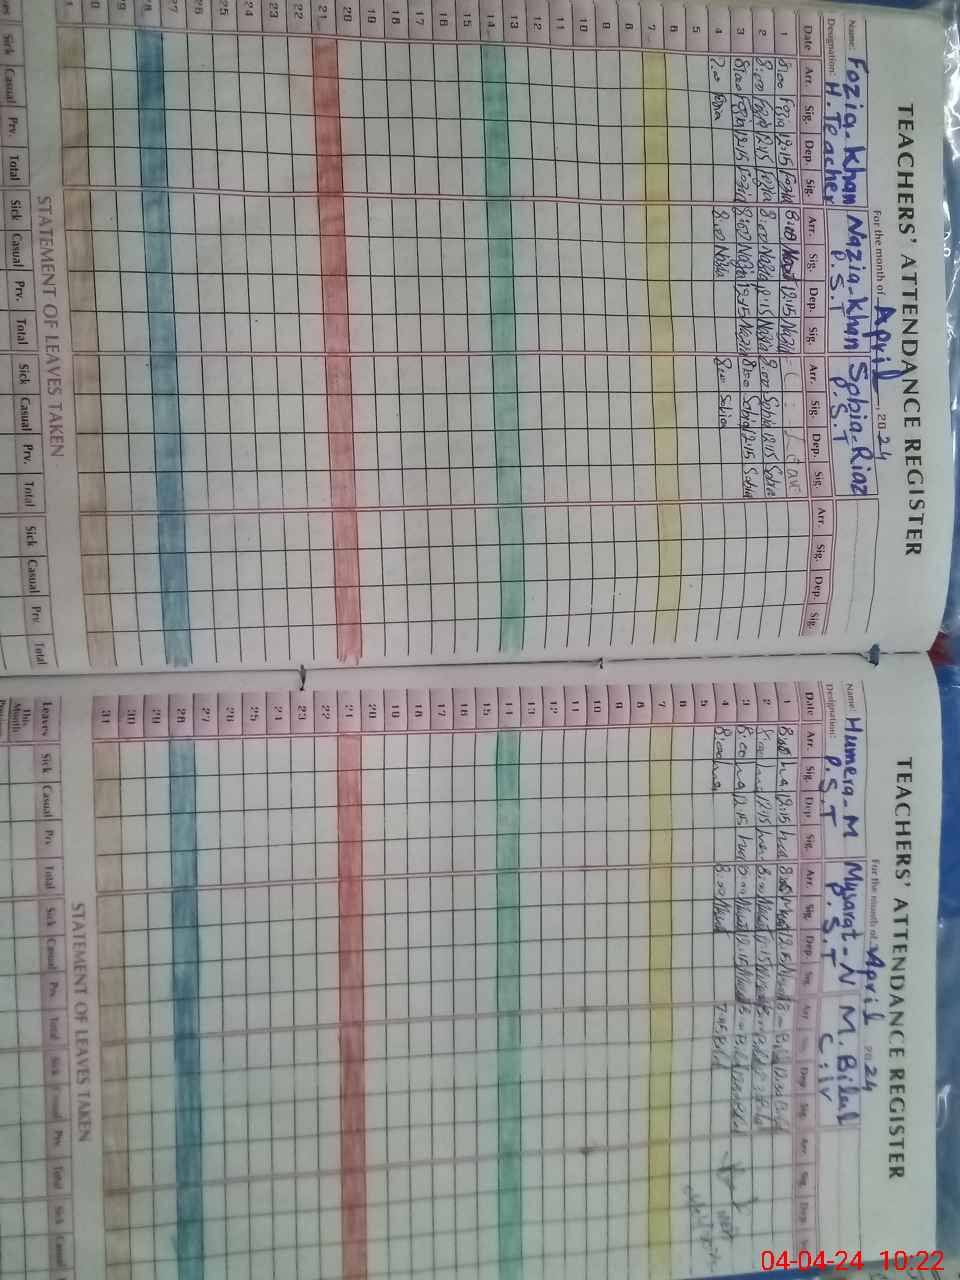 TEACHERS' ATTENDANCE REGISTER
For the month of April, 2024
Name: Fozia-Khan Nazia-Khan Sobia-Riaz
Designation: H.Teacher P.S.T P.S.T
Date Arr. Sig. Dep. Sig. Arr. Sig. Dep. Sig. Arr. Sig. Dep. Sig. Arr. Sig. Dep. Sig.
1 8:00 Fozia 12:15 Fozia 8:00 12:15 Nazia Leave
2 8:00 Fozia 12:15 Fozia 8:00 Nazia 12:15 Nazia 8:00 Sobia 12:15 Sobia
3 8:00 Fozia 12:15 Fozia 8:00 Nazia 12:15 Nazia 8:00 Sobia 12:15 Sobia
4 8:00 Nazia 8:00 Sobia
5
6
7
8
9
10
11
12
13
14
15
16
17
18
19
20
21
22
23
24
25
26
27
28
29
30
31
STATEMENT OF LEAVES TAKEN
Sick Casual Prv. Total Sick Casual Prv. Total Sick Casual Prv. Total Sick Casual Prv Total
TEACHERS' ATTENDANCE REGISTER
For the month of April 2024
Name: Humera-M Musarat-N M.Bilal
Designation: P.S.T P.S.T C.iv
Date Arr. Sig. Dep Sig. Arr. Sig. Dep. Sig. Arr Sig. Dep Sig. Arr Sig. Dep.
1 12:15
2 12:15
3 8:00 12:15
4 8:00 8:00 7:45 Bilal
5
6
7
8
9
10
11
12
13
14
15
16
17
18
19
20
21
22
23
24
25
26
27
28
29
30
31
STATEMENT OF LEAVES TAKEN
Leaves Sick Casual Prv Total Sick Casual Prv. Total Sick Casual Prv. Total Sick Casual
This Month
04-04-24 10:22